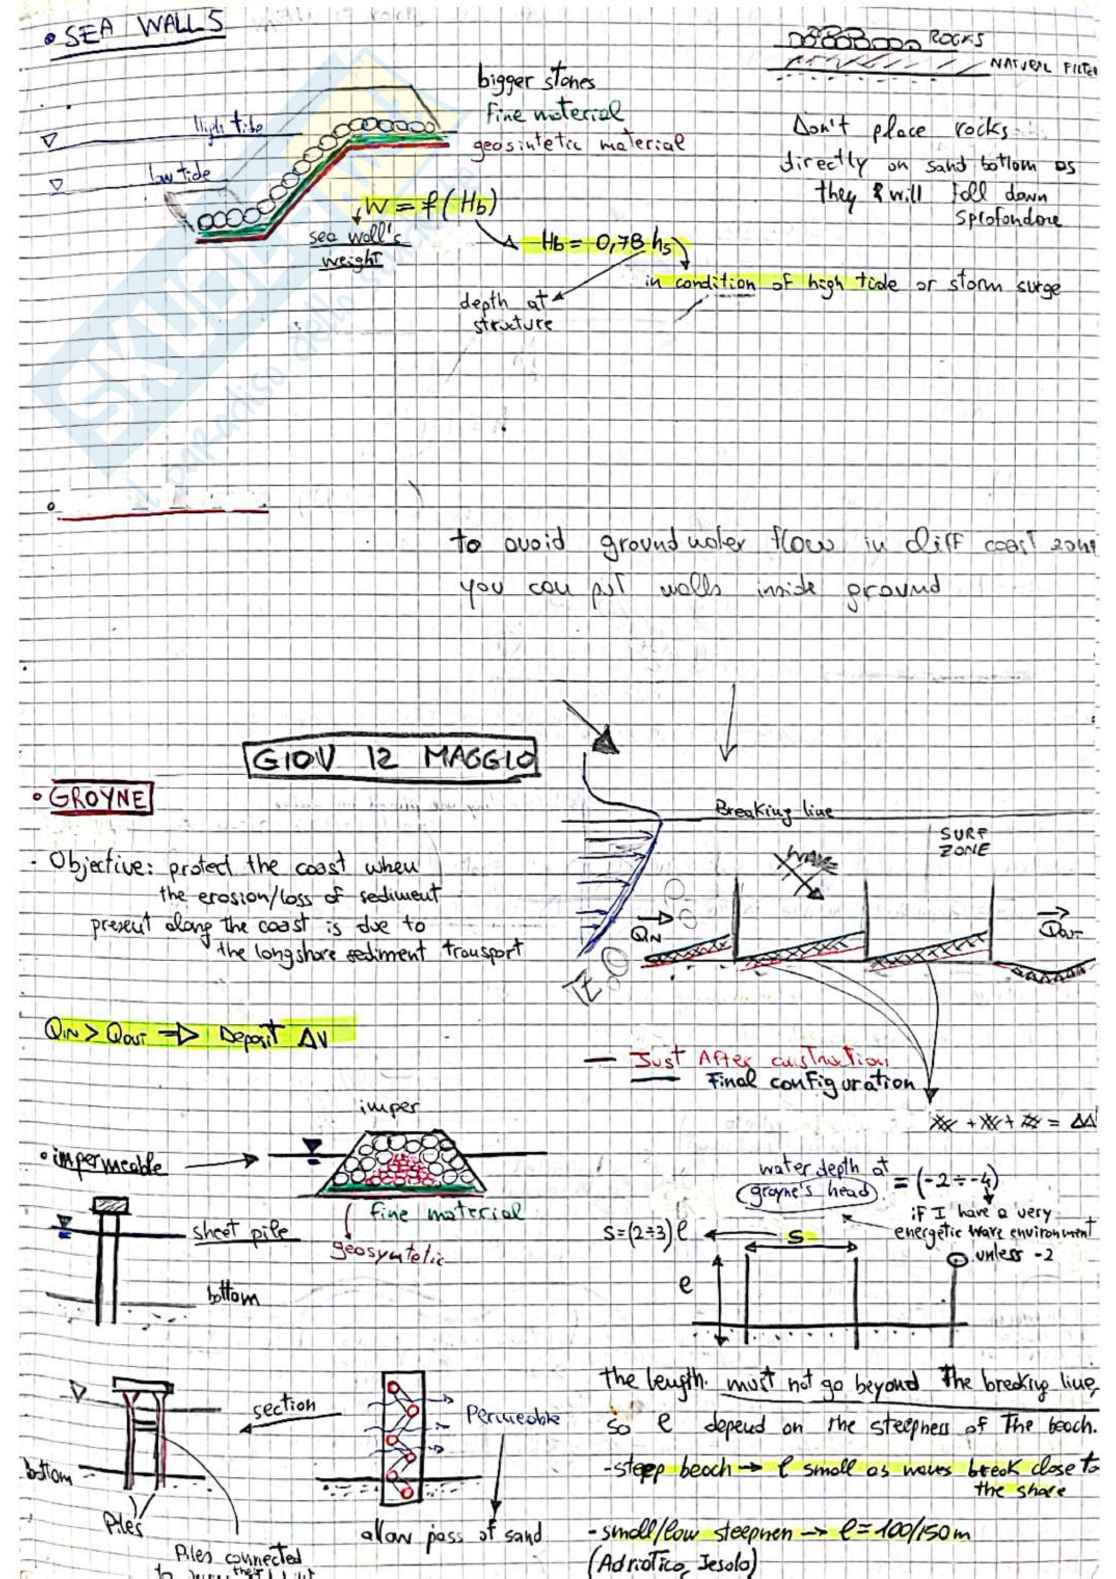 • SEA WALLS
ROCKS
NATURAL FILTER
bigger stones
fine material
geosintetic material
High tide
low tide
Don't place rocks
directly on sand bottom as
they will fall down
Sprofondare
W = f(Hb)
sea wall's
weight
Hb = 0,78 hs
in condition of high tide or storm surge
depth at
structure
to avoid ground water flow in cliff coast zone
you can put walls inside ground
GIOV 12 MAGGIO
• GROYNE
Breaking line
SURF
ZONE
WAVE
QIN
QOUT
- Objective: protect the coast when
the erosion/loss of sediment
present along the coast is due to
the longshore sediment transport
QIN > QOUT => Deposit ΔV
— Just After custruction
— Final configuration
imper
• impermeable
fine material
geosyntetic
sheet pile
bottom
water depth at
groyne's head
= (-2 ÷ -4)
if I have a very
energetic wave environment
unless -2
S=(2÷3)l
S
l
section
Permeable
bottom
Piles
allow pass of sand
Piles connected
the length must not go beyond the breaking line,
so l depend on the steepness of the beach.
-steep beach → l small as waves break close to
the shore
-small/low steepnen → l = 100/150m
(Adriatico, Jesolo)